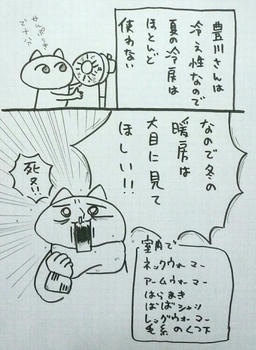 豊川さんは
冷え性なので
夏の冷房は
ほとんど
使わない
せんぷうきで
十分
なので冬の
暖房は
大目に見て
ほしい!!
死ヌ!!
室内で
ネックウォーマー
アームウォーマー
はらまき
ばばシャツ
レッグウォーマー
毛糸のくつ下